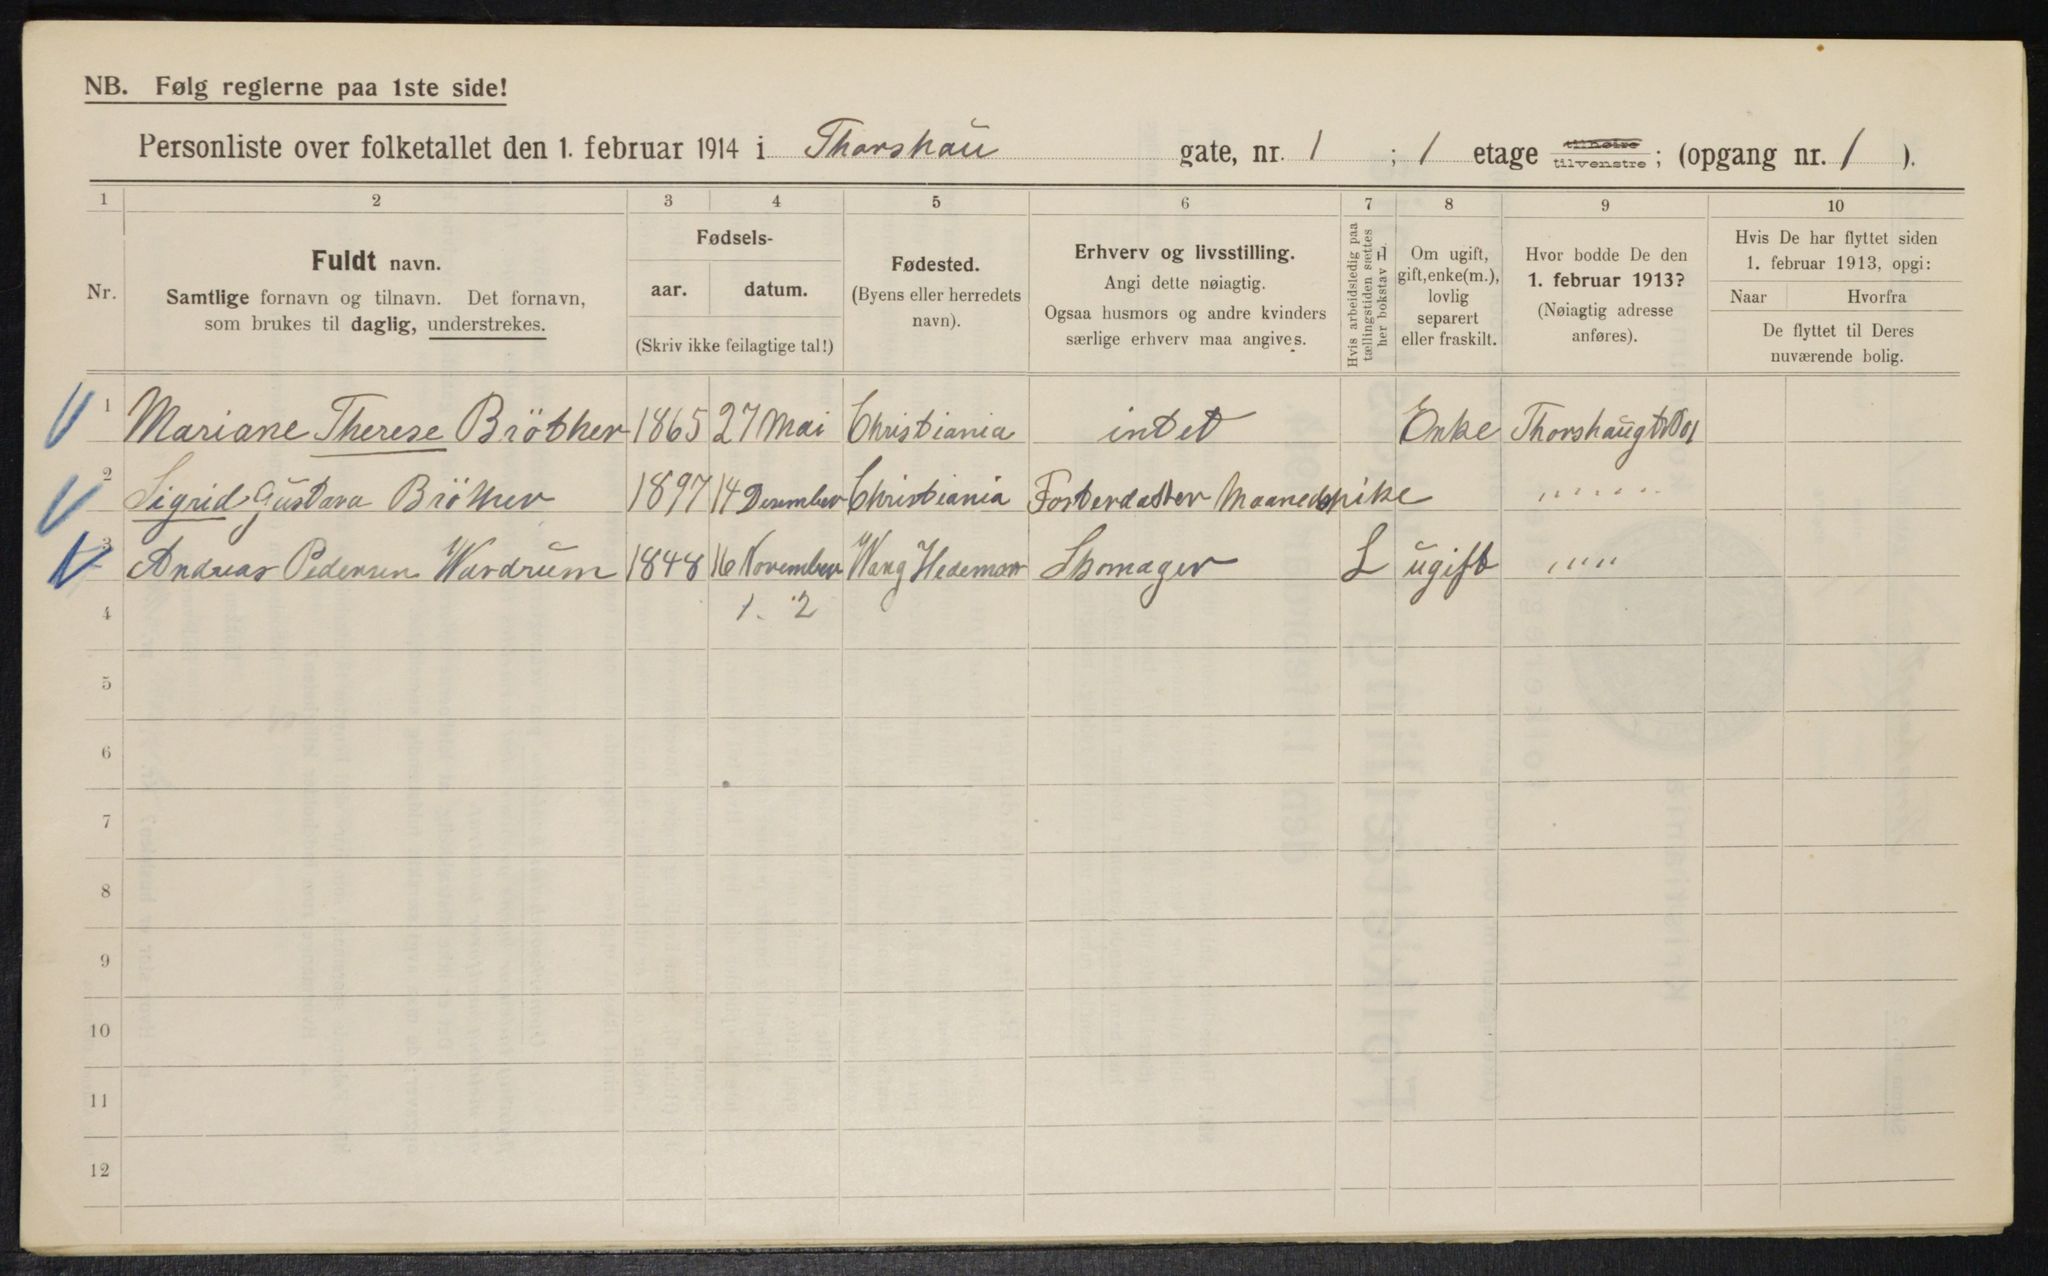 NB. Følg reglerne paa 1ste side!
Personliste over folketallet den 1. februar 1914 i Thorshau gate, nr. 1 ; 1 etage tilhøire tilvenstre ; (opgang nr. 1 ).
1 2 3 4 5 6 7 8 9 10
Nr.
Fuldt navn.
Samtlige fornavn og tilnavn. Det fornavn,
som brukes til daglig, understrekes.
Fødsels-
aar. datum.
(Skriv ikke feilagtige tal!)
Fødested.
(Byens eller herredets
navn).
Erhverv og livsstilling.
Angi dette nøiagtig.
Ogsaa husmors og andre kvinders
særlige erhverv maa angives.
Hvis arbeidsledig paa
tællingstiden sættes
her bokstav L
Om ugift,
gift, enke(m.),
lovlig
separert
eller fraskilt.
Hvor bodde De den
1. februar 1913?
(Nøiagtig adresse
anføres).
Hvis De har flyttet siden
1. februar 1913, opgi:
Naar Hvorfra
De flyttet til Deres
nuværende bolig.
1 Mariane Therese Bröther 1865 27 Mai Christiania intet Enke
2 Sigrid Gustava Bröther 1897 14 Desember Christiania Fosterdatter Maanedspike " " " " "
3 Andreas Pedersen Wardrum 1848 16 November Wang Hedemar Skomager L ugift " " " "
4 1. 2
5
6
7
8
9
10
11
12